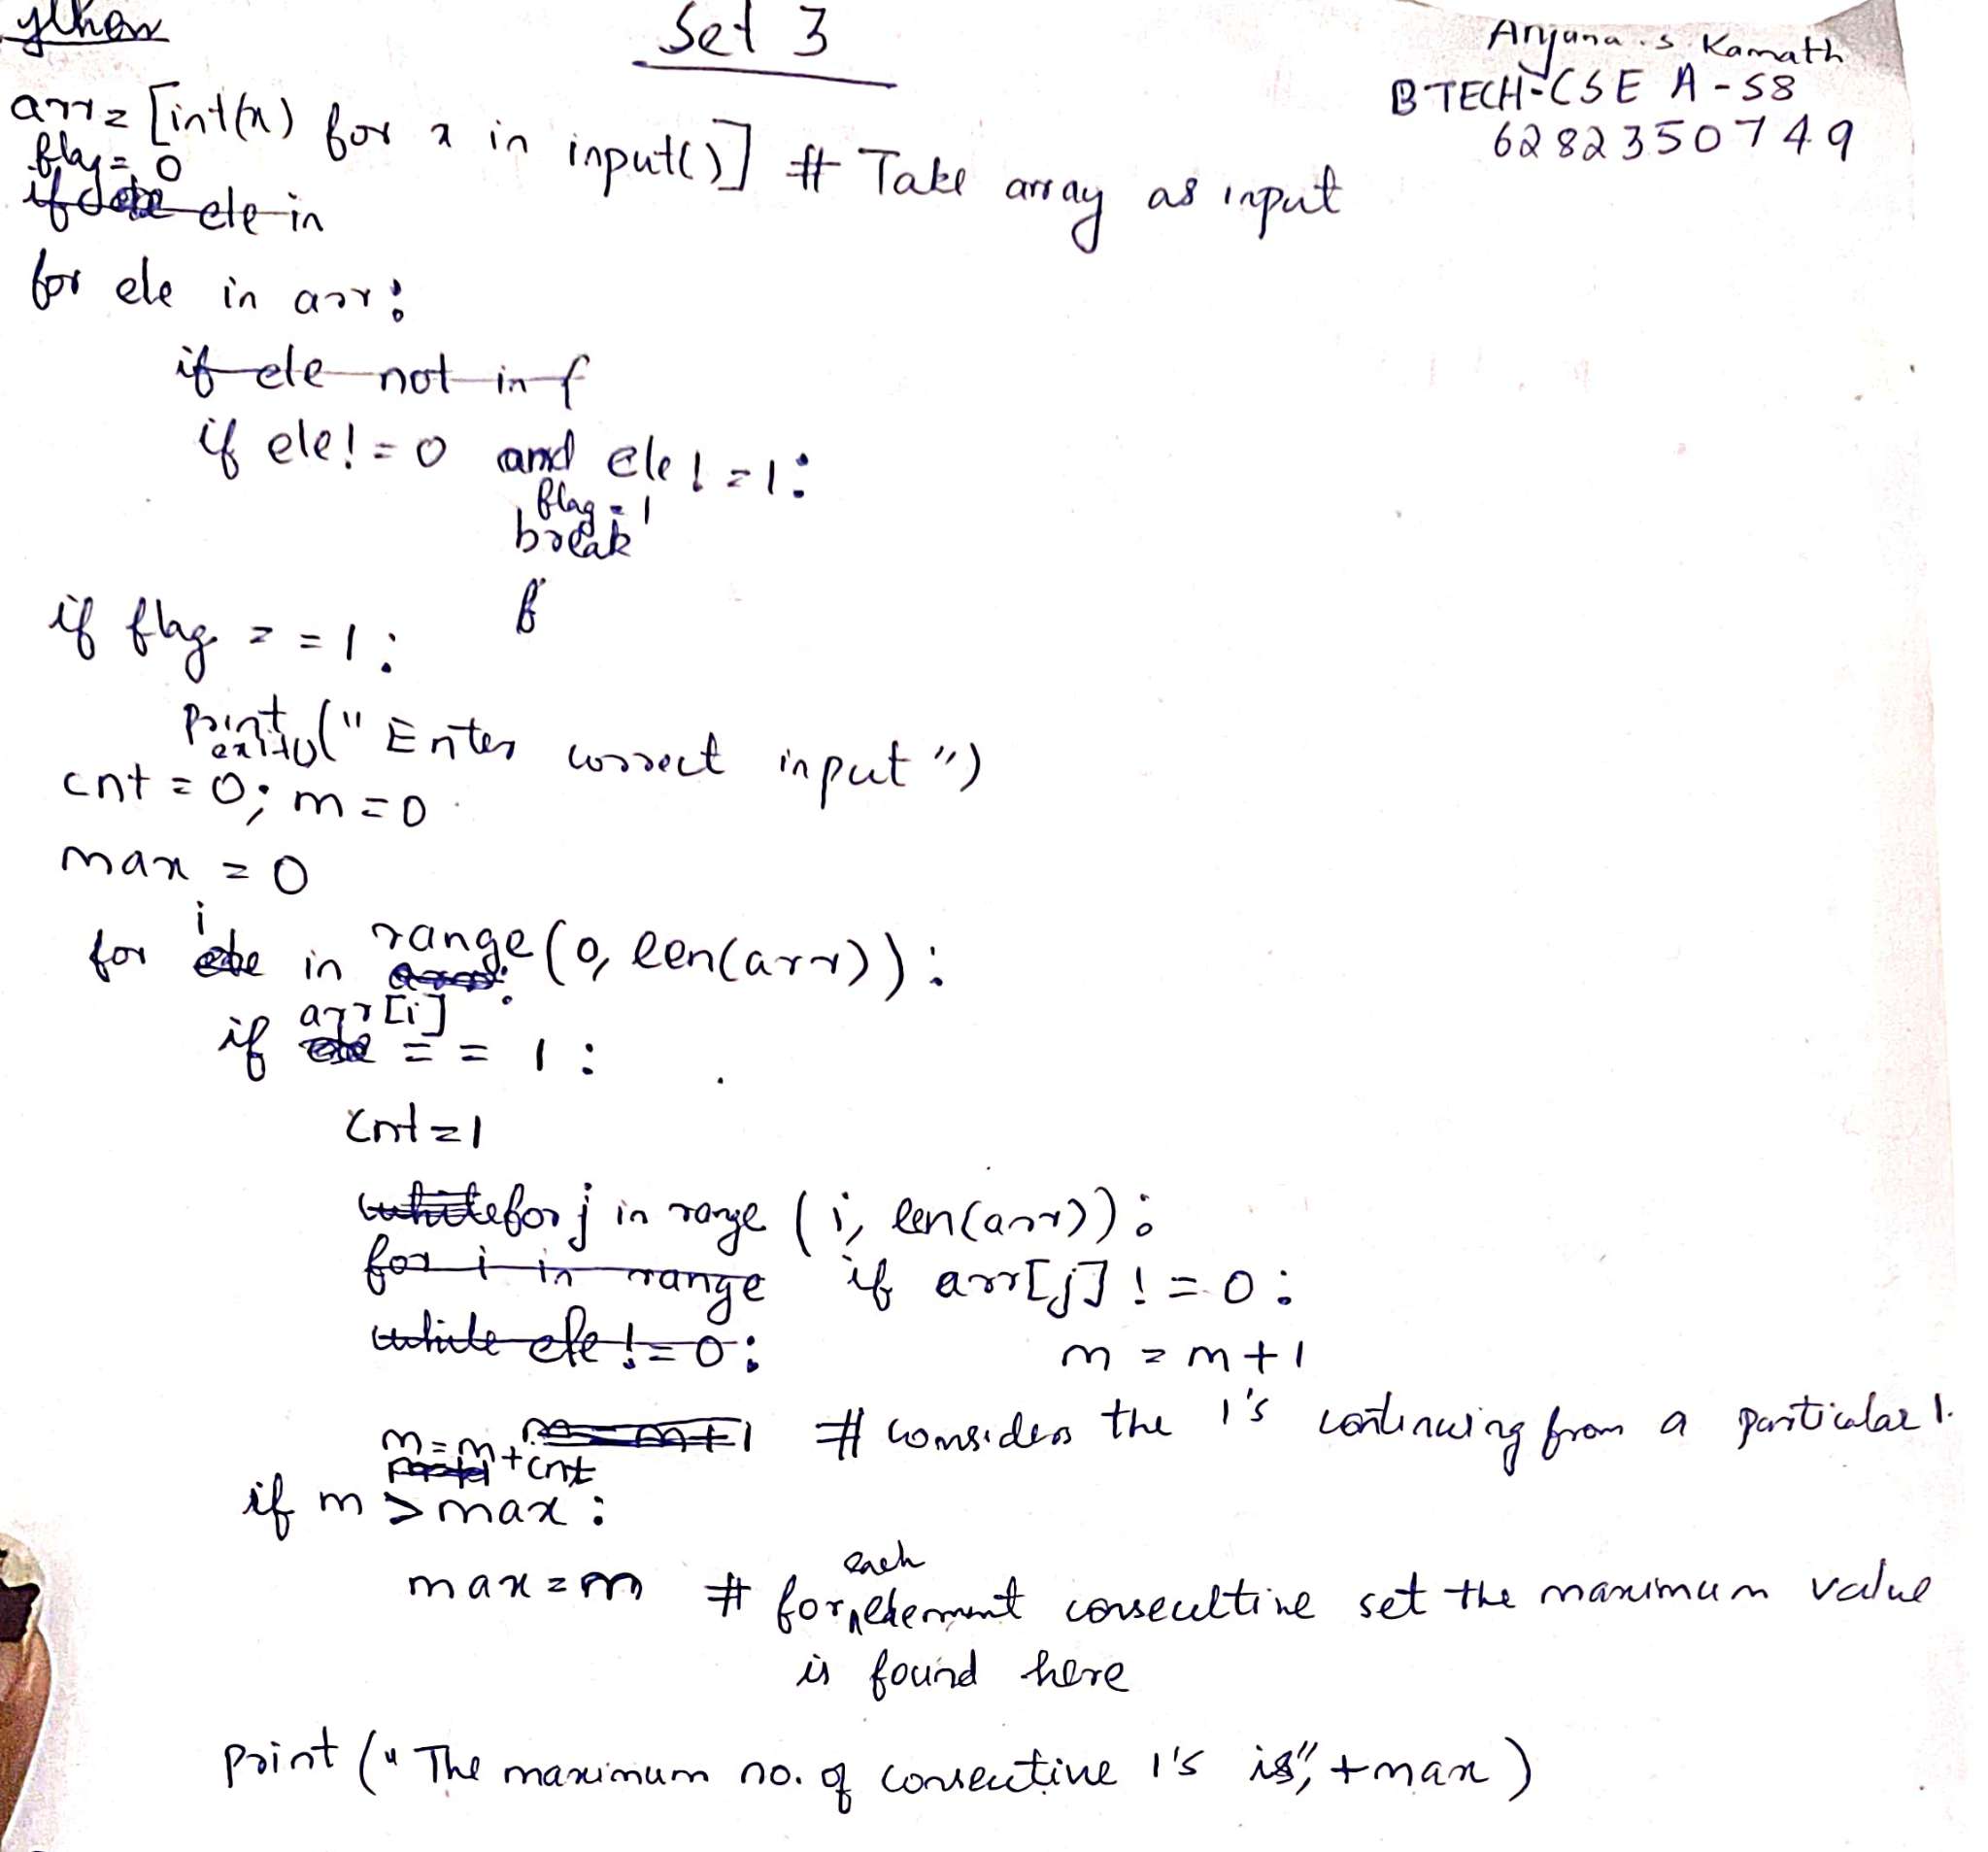 ython
Set 3
Anjana.S.Kamath
BTECH-CSE A-S8
6282350749
arr = [int(x) for x in input()] # Take array as input
flag = 0
ele in
for ele in arr:
if ele not in f
if ele! = 0 and ele! = 1:
flag = 1
break
if flag = = 1:
f
Print("Enter correct input")
exit()
cnt = 0; m = 0
max = 0
for i in range(0, len(arr)):
if arr[i] = = 1:
cnt = 1
while for j in range (i, len(arr)):
for i in range if arr[j] ! = 0:
while ele ! = 0: m = m+1
m = m+1 # considers the 1's continuing from a particular 1.
m = m + cnt
if m > max:
max = m # for each element conseultive set the maximum value
is found here
print ("The maximum no. of consecutive 1's is", +max)